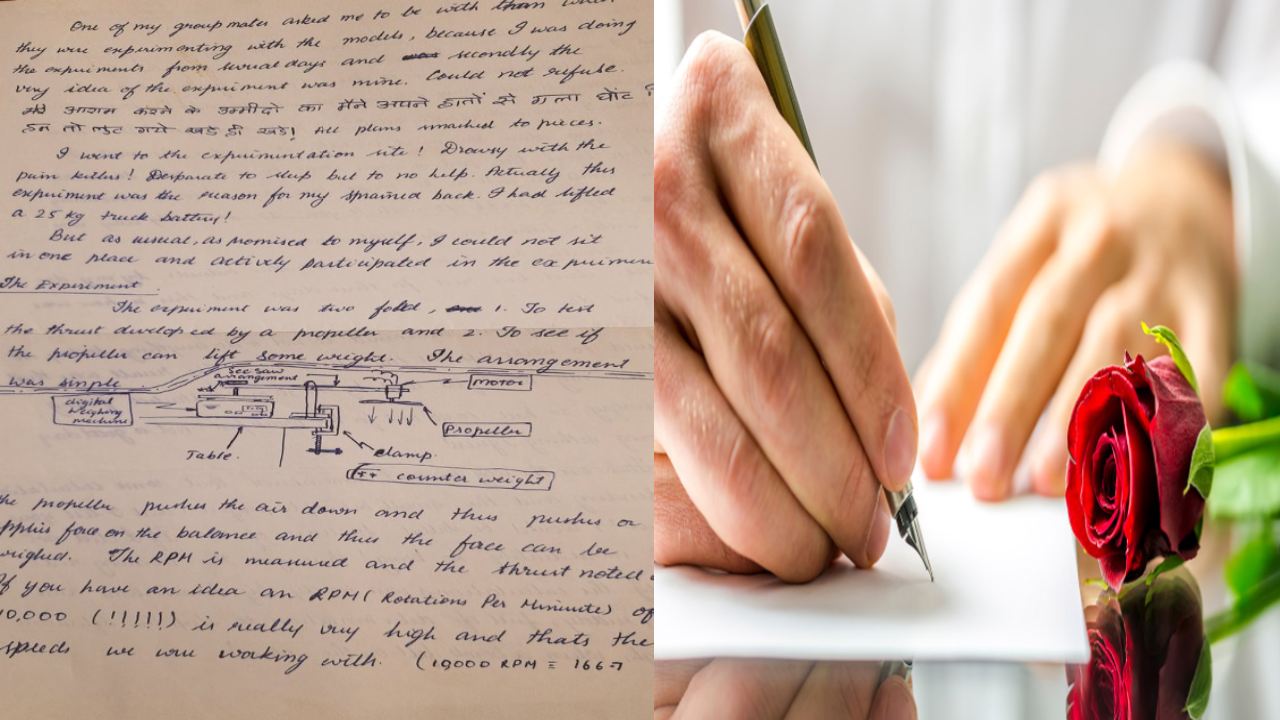 One of my group mates asked me to be with them when
they were experimenting with the models, because I was doing
the experiments from several days and secondly the
very idea of the experiment was mine. Could not refuse.
मेरे आराम करने के उम्मीदो का मैंने अपने हातों से गला घोंट
हम तो लुट गये खडे ही खडे! All plans smashed to pieces.
I went to the experimentation site! Drowsy with the
pain killers! Desparate to sleep but to no help. Actually this
experiment was the reason for my sprained back. I had lifted
a 25 kg truck battery!
But as usual, as promised to myself, I could not sit
in one place and actively participated in the experiment
The Experiment.
The experiment was two fold, 1. To test
the thrust developed by a propeller and 2. To see if
the propeller can lift some weight. The arrangement
was simple
See saw
arrangement
motor
digital
weighing
machine
Propeller
Table.
clamp.
(++ counter weight)
the propeller pushes the air down and thus pushes or
applies force on the balance and thus the force can be
weighed. The RPM is measured and the thrust noted
If you have an idea an RPM (Rotations Per Miniute) of
10,000 (!!!!!) is really very high and thats the
speeds we were working with. (10000 RPM = 1667